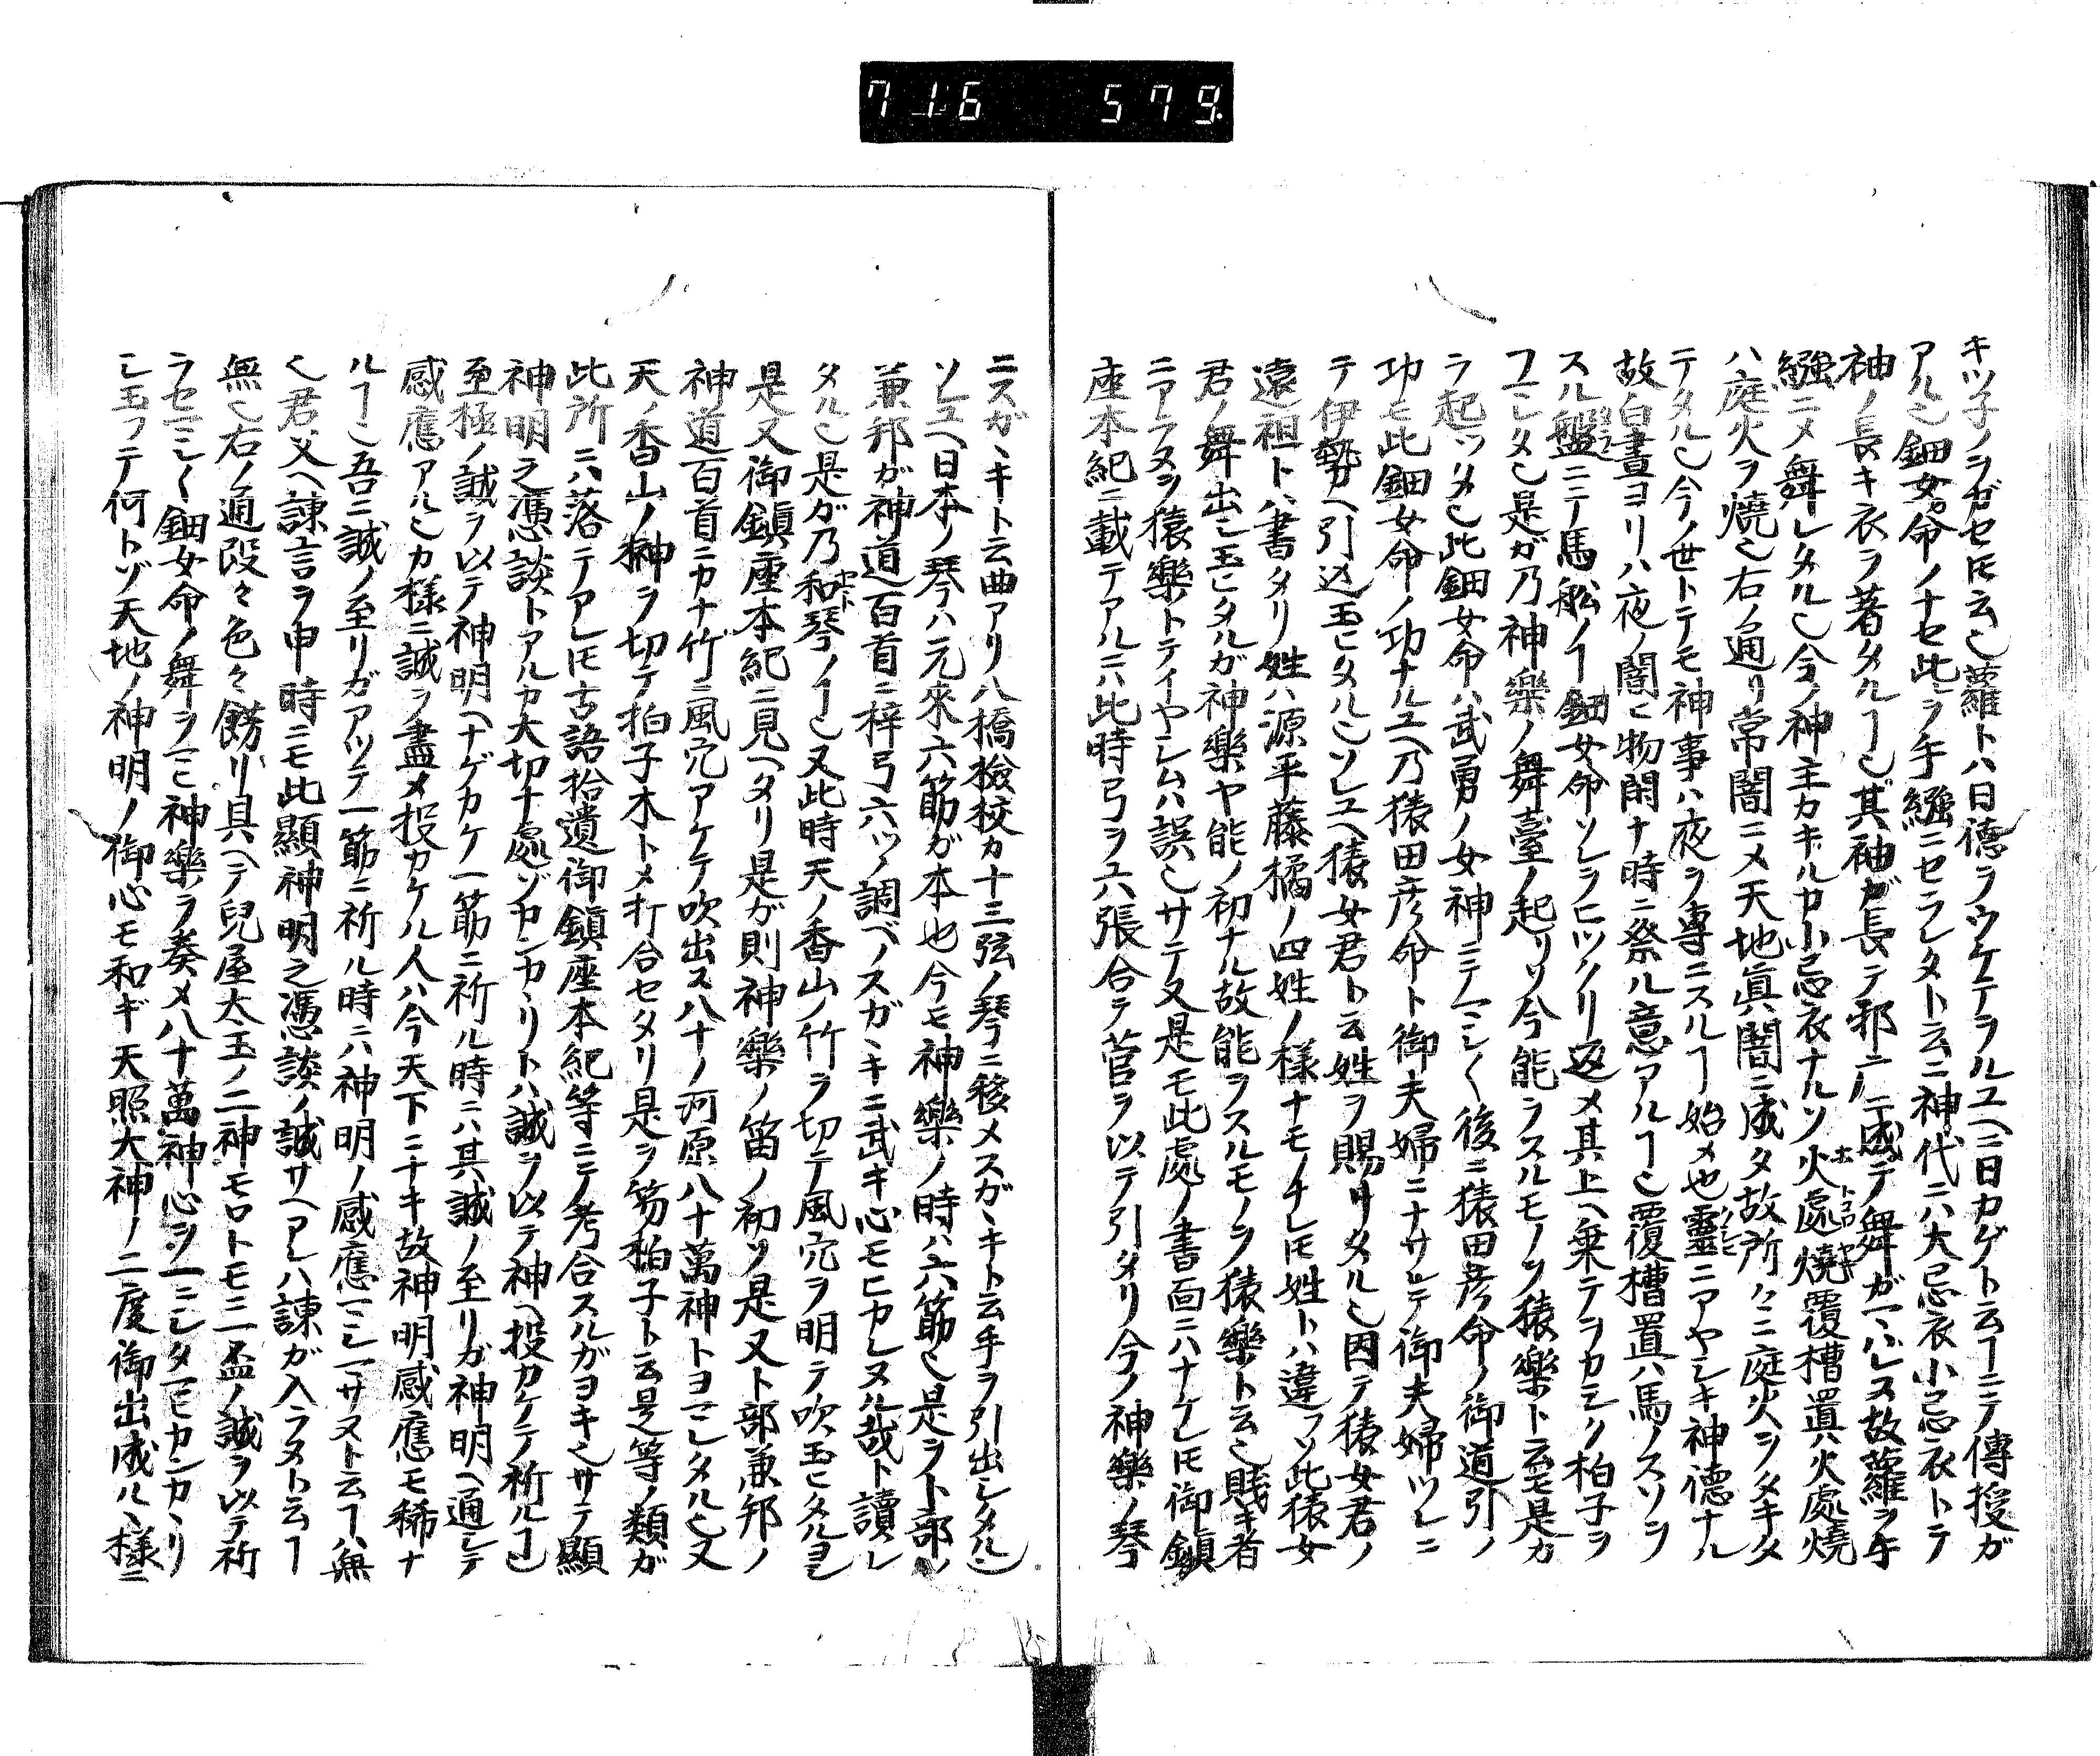 716 579
キツ子ノラガセ𪜈云也蘿トハ日徳ヲウケテヲルユヘニ日カゲト云ヿニテ傳授ガ
アル也鈿女命ノナセ此ヲ手繦ニセラレタト云ニ神代ニハ大忌衣小忌衣トテ
神ノ長キ衣ヲ著タルヿ也其袖ガ長テ邪ニ成テ舞ガマハレヌ故蘿ヲ手
繦ニメ舞レタル也今ノ神主カキルカ小忌衣ナルソ火處燒覆槽置ハ火處燒
ハ庭火ヲ燒也右ノ通リ常闇ニメ天地真闇ニ成タ故所々ニ庭火ヲタキタ
テタル也今ノ世トテモ神事ハ夜ヲ專ニスルヿ始メ也靈ニアヤシキ神德ナル
故白晝ヨリハ夜ノ闇ニ物閑ナ時ニ祭ル意アルヿ也覆槽置ハ馬ノスソヲ
スル盤ニテ馬舩ノヿ鈿女命ソレヲヒツクリ返メ其上ヘ乗テヲカミク拍子ヲ
フミシタ也是ガ乃神樂ノ舞臺ノ起リソ今能ヲスルモノヲ猿樂ト云モ是カ
ラ起ツタ也此鈿女命ハ武勇ノ女神ニテマシ〱後ニ猿田彦命ノ御道引ノ
功モ此鈿女命ノ功ナルユヘ乃猿田彦命ト御夫婦ニナサレテ御夫婦ツレニ
テ伊勢ヘ引込玉ヒタル也ソレユヘ猿女君ト云姓ヲ賜リタル也因テ猿女君ノ
遠祖トハ書タリ姓ハ源平藤橘ノ四姓ノ様ナモノナレ𪜈姓トハ違フソ此猿女
君ノ舞出シ玉ヒタルガ神樂ヤ能ノ初ナル故能ヲスルモノヲ猿樂ト云也賎キ者
ニアラヌヲ猿樂トテイヤシムハ誤也サテ又是モ此處ノ書面ニハナケレ𪜈御鎮
座本紀ニ載テアルニハ此時弓ヲ六張合テ菅ヲ以テ引タリ今ノ神樂ノ琴
ニスガヽキト云曲アリ八橋撿挍カ十三弦ノ琴ニ移メスガヽキト云手ヲ引出シタル也
ソレユヘ日本ノ琴ハ元來六筋ガ本也今モ神樂ノ時ハ六筋也是ヲ卜部ノ
兼邦ガ神道百首ニ梓弓六ツノ調ベノスガヽキニ武キ心モヒカレヌル哉ト讀レ
タル也是ガ乃和琴ノヿ也又此時天ノ香山ノ竹ヲ切テ風穴ヲ明テ吹玉ヒタルヨシ
是又御鎮座本紀ニ見ヘタリ是ガ則神樂ノ笛ノ初ソ是又卜部兼邦ノ
神道百首ニカナ竹ニ風穴アケテ吹出ス八十ノ河原八十萬神トヨマレタル也又
天ノ香山ノ榊ヲ切テ拍子木トメ打合セタリ是ヲ笏拍子ト云是等ノ類ガ
此所ニハ落テアレ𪜈古語拾遺御鎮座本紀等ニテ考合スルガヨキ也サテ顯
神明之憑談トアルカ大切ナ處ゾカンカヽリトハ誠ヲ以テ神ヘ投カケテ祈ルヿ也
至極ノ誠ヲ以テ神明ヘナゲカケ一筋ニ祈ル時ニハ其誠ノ至リガ神明ヘ通シテ
感應アル也カ様ニ誠ヲ盡メ投カケル人ハ今天下ニナキ故神明感應モ稀ナ
ルヿ也吾ニ誠ノ至リガアツテ一筋ニ祈ル時ニハ神明ノ感應マシマサヌト云ヿハ無
也君父ヘ諫言ヲ申時ニモ此顯神明之憑談ノ誠サヘアレハ諫ガ入ラヌト云ヿ
無也右ノ通段々色々餝リ具ヘテ兒屋太玉ノ二神モロトモニ一盃ノ誠ヲ以テ祈
ラセマシ〱鈿女命ノ舞ヲマヒ神樂ヲ奏メ八十萬神心ヲ一ニシタマヒカンカヽリ
シ玉フテ何トゾ天地ノ神明ノ御心モ和ギ天照大神ノ二度御出成ルヽ様ニ